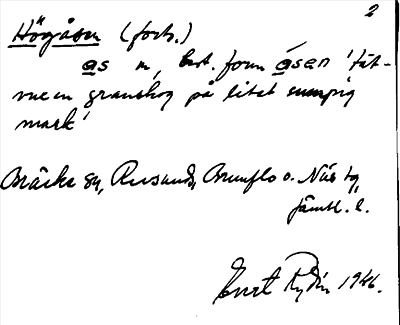 2
Högåsen (forts.)
as m, best. form åsen 'tät-
vuxen granskog på litet sumpig
mark'
Bräcke sn, Revsunds, Brunflo o. Näs tg,
Jämtl. l.
Curt Rydin 1946.